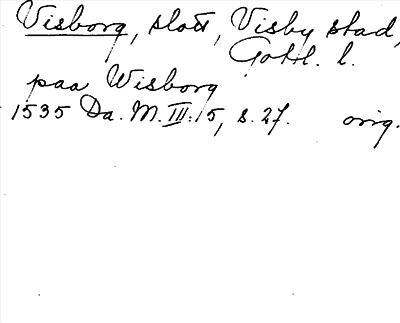 Visborg, slott, Visby stad,
Gotl. l.
paa Wisborg
1535 Da. M. III. 5, s. 27. orig.